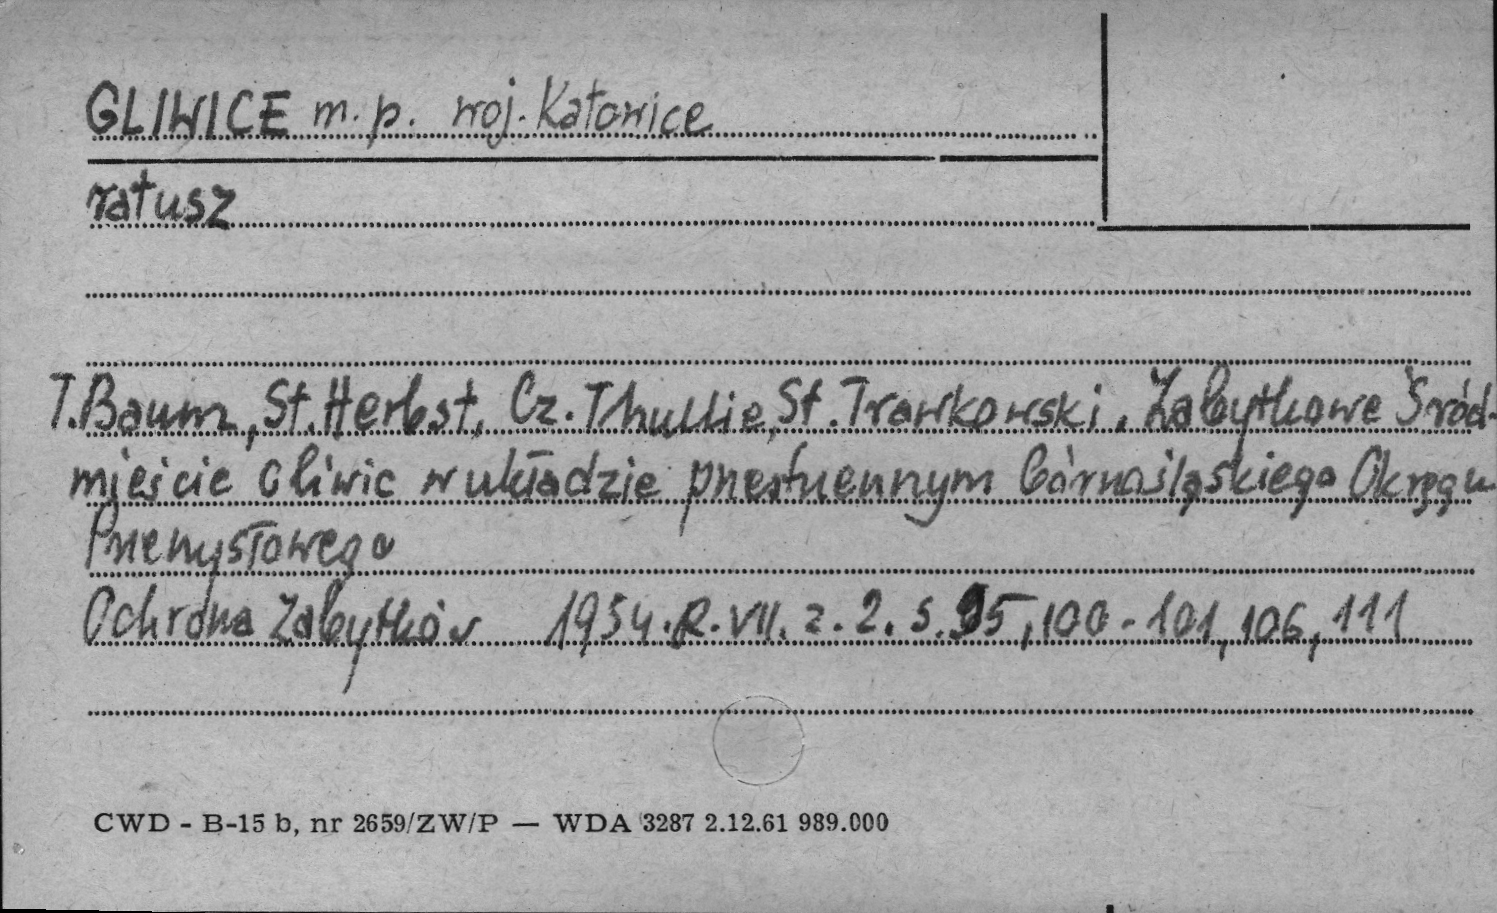 GLIWICE m. p. woj. Katowice
ratusz
T. Baum, St. Herbst, Cz. Thullie, St. Trawkowski. Zabytkowe Śród-
mieście Gliwic w układzie przestrzennym Górnośląskiego Okręgu
Przemysłowego
Ochrona Zabytków 1954. R. VII. z. 2. s. 95, 100-101, 106, 111
CWD - B-15 b, nr 2659/ZW/P — WDA 3287 2.12.61 989.000